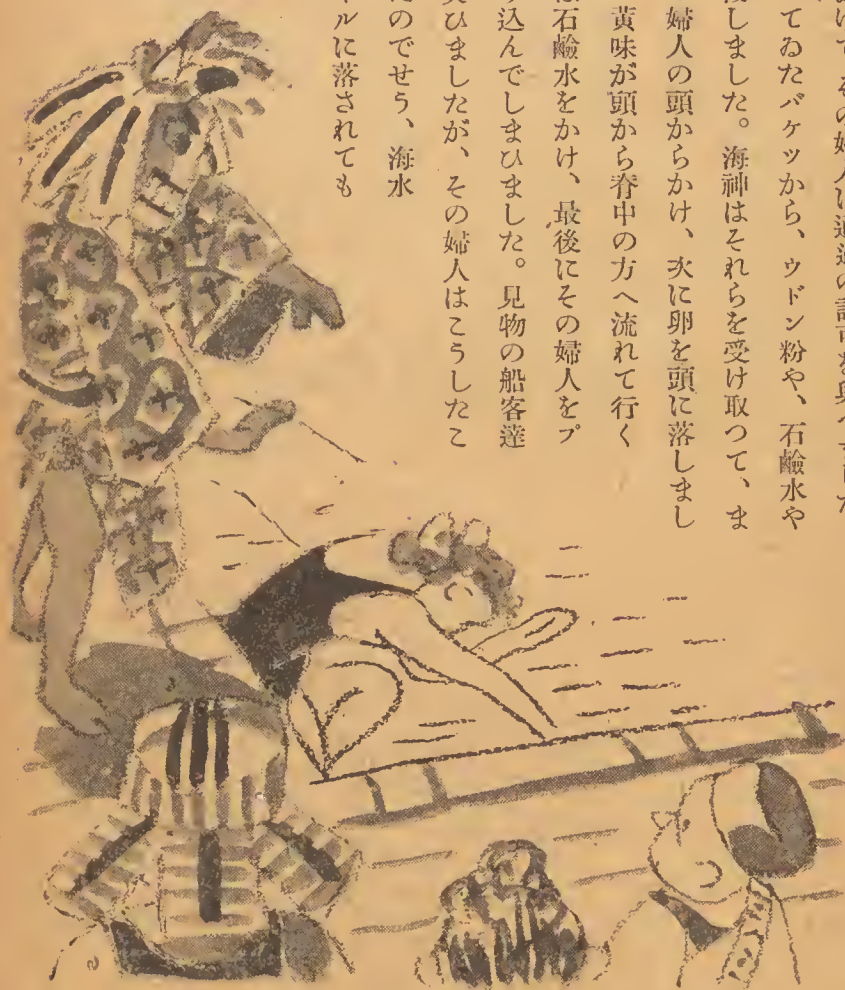 その婦人に通過の許可を與へました
てゐたバケツから、ウドン粉や、石鹼水や
しました。海神はそれらを受け取つて、ま
婦人の頭からかけ、次に卵を頭に落しまし
黄味が頭から脊中の方へ流れて行く
石鹼水をかけ、最後にその婦人をプ
込んでしまひました。見物の船客達
ひましたが、その婦人はこうしたこ
のでせう、海水
ルに落されても